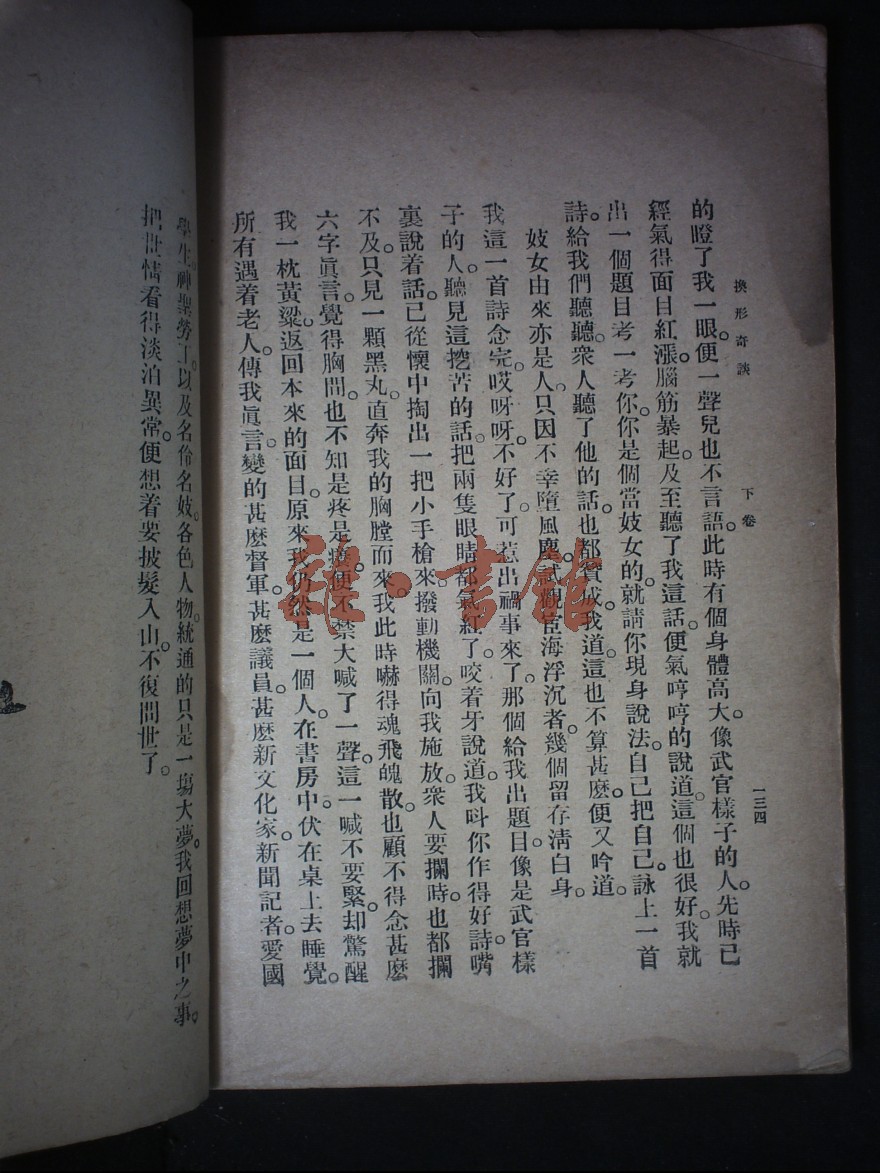 換形奇談　下卷　一三四
的瞪了我一眼。便一聲兒也不言語。此時有個身體高大。像武官樣子的人。先時已
經氣得面目紅漲。腦筋暴起。及至聽了我這話。便氣哼哼的說道。這個也很好。我就
出一個題目考一考你。你是個當妓女的。就請你現身說法。自己把自己。詠上一首
詩。給我們聽聽。衆人聽了他的話。也都贊成。我道。這也不算甚麽。便又吟道。
妓女由來亦是人。只因不幸墮風塵。試觀宦海浮沉者。幾個留存淸白身。
我這一首詩念完。哎呀呀。不好了。可惹出禍事來了。那個給我出題目。像是武官樣
子的人。聽見這挖苦的話。把兩隻眼睛都氣紅了。咬着牙說道。我叫你作得好詩。嘴
裏說着話。已從懷中掏出一把小手槍來。撥動機關。向我施放。衆人要攔時。也都攔
不及。只見一顆黑丸。直奔我的胸膛而來。我此時嚇得魂飛魄散。也顧不得念甚麽
六字眞言。覺得胸間。也不知是疼是癢。便不禁大喊了一聲。這一喊不要緊。却驚醒
我一枕黃粱。返回本來的面目。原來我仍然是一個人。在書房中。伏在桌上去睡覺。
所有遇着老人。傳我眞言。變的甚麽督軍。甚麽議員。甚麽新文化家。新聞記者。愛國
學生。神聖勞工。以及名伶名妓。各色人物。統通的只是一塲大夢。我回想夢中之事。
把世情看得淡泊異常。便想着要披髮入山。不復問世了。
雜·書館